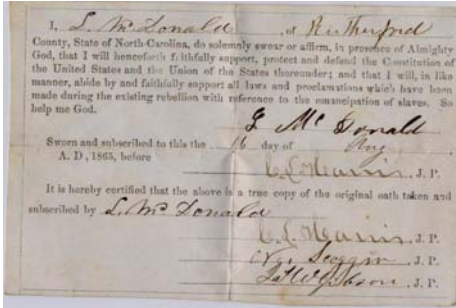 I, L. McDonald of Rutherford
County, State of North-Carolina, do solemnly swear or affirm, in presence of Almighty
God, that I will henceforth faithfully support, protect and defend the Constitution of
the United States and the Union of the States thereunder; and that I will, in like
manner, abide by and faithfully support all laws and proclamations which have been
made during the existing rebellion with reference to the emancipation of slaves. So
help me God.
L McDonald
Sworn and subscribed to this the 16 day of Aug
A. D, 1865, before
C. L. Harris, J. P.
It is hereby certified that the above is a true copy of the original oath taken and
subscribed by L. McDonald
C. L. Harris, J. P.
Scoggin, J. P.
J. P.